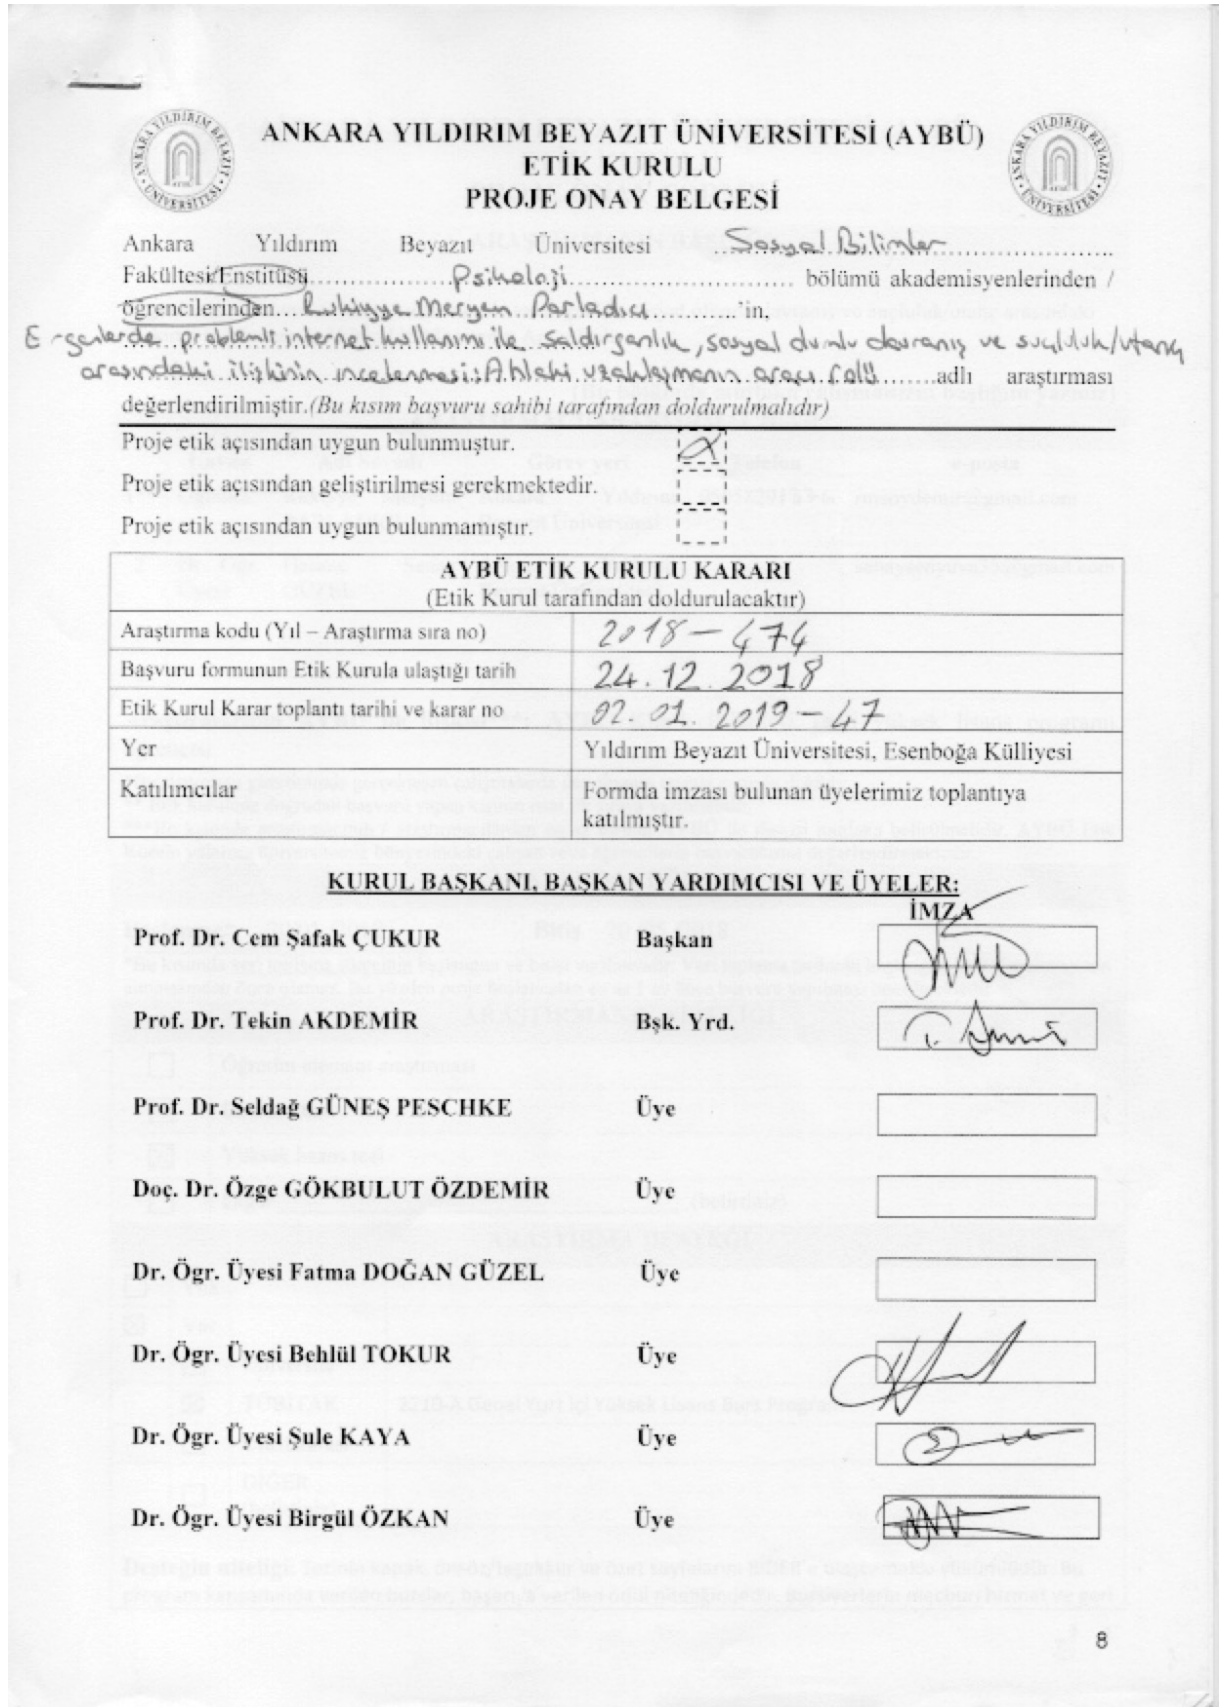 ANKARA YILDIRIM BEYAZIT ÜNİVERSİTESİ (AYBÜ)
ETİK KURULU
PROJE ONAY BELGESİ
Ankara Yıldırım Beyazıt Üniversitesi ...Sosyal Bilimler...
Fakültesi/Enstitüsü...Psikoloji... bölümü akademisyenlerinden /
öğrencilerinden...Ruhiyye Meryem Parladıcı...'in,
Ergenlerde problemli internet kullanımı ile saldırganlık, sosyal olumlu davranış ve suçluluk/utanç
arasındaki ilişkinin incelenmesi: Ahlaki uzaklaşmanın aracı rolü...adlı araştırması
değerlendirilmiştir.(Bu kısım başvuru sahibi tarafından doldurulmalıdır)
Proje etik açısından uygun bulunmuştur.
Proje etik açısından geliştirilmesi gerekmektedir.
Proje etik açısından uygun bulunmamıştır.
AYBÜ ETİK KURULU KARARI
(Etik Kurul tarafından doldurulacaktır)
Araştırma kodu (Yıl – Araştırma sıra no) 2018 – 474
Başvuru formunun Etik Kurula ulaştığı tarih 24.12.2018
Etik Kurul Karar toplantı tarihi ve karar no 02.01.2019 – 47
Yer Yıldırım Beyazıt Üniversitesi, Esenboğa Külliyesi
Katılımcılar Formda imzası bulunan üyelerimiz toplantıya
katılmıştır.
KURUL BAŞKANI, BAŞKAN YARDIMCISI VE ÜYELER:
İMZA
Prof. Dr. Cem Şafak ÇUKUR Başkan
Prof. Dr. Tekin AKDEMİR Bşk. Yrd.
Prof. Dr. Seldağ GÜNEŞ PESCHKE Üye
Doç. Dr. Özge GÖKBULUT ÖZDEMİR Üye
Dr. Ögr. Üyesi Fatma DOĞAN GÜZEL Üye
Dr. Ögr. Üyesi Behlül TOKUR Üye
Dr. Ögr. Üyesi Şule KAYA Üye
Dr. Ögr. Üyesi Birgül ÖZKAN Üye
8